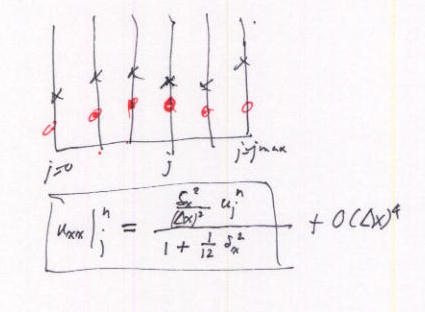 j=0 j j=jmax
u_xx|_j^n = (δ_x^2/(Δx)^2 u_j^n)/(1 + 1/12 δ_x^2) + O(Δx)^4